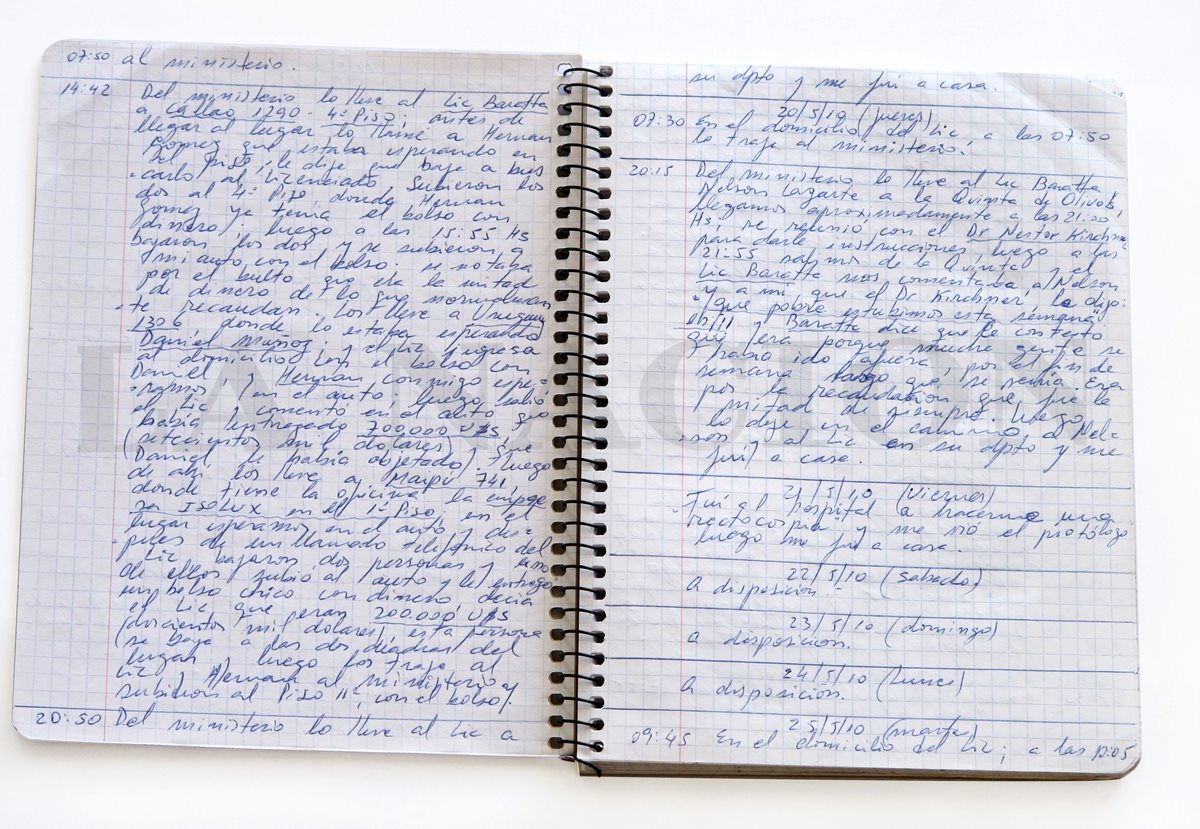 07:50 al ministerio.
14:42 Del ministerio lo lleve al Lic Baratta
a Callao 1290 - 4º Piso, antes de
llegar al lugar lo llame a Hernan
Gomez que estaba esperando en
el piso, le dije que baje a bus-
carlo al Licenciado. Subieron los
dos al 4º Piso, donde Hernan
Gomez ya tenia el bolso con
dinero, luego a las 15:55 Hs
bajaron los dos y se subieron a
mi auto con el bolso. se notaba
por el bulto que era la mitad
de dinero de lo que normalmen-
te recaudan. Los lleve a Uruguay
1306, donde lo estaba esperando
Daniel Muñoz. y el Lic ingresa
al domicilio con el bolso con
Daniel y Hernan conmigo espe-
ramos en el auto, luego salió
el Lic y comentó en el auto que
habia entregado 700.000 U$S,
(setecientos mil dolares) y que
Daniel le habia objetado). luego
de ahi los lleve a Maipú 741,
donde tiene la oficina la empre-
sa ISOLUX en el 1º Piso, en el
lugar esperamos en el auto y des-
pues de un llamado telefonico del
Lic bajaron dos personas y uno
de ellos subio al auto y le entregó
un bolso chico con dinero decia
el Lic que eran 200.000 U$S
(doscientos mil dolares), esta persona
se bajo a las dos cuadras del
lugar, luego los traje al
Lic y Hernan al ministerio y
subieron al Piso 11, con el bolso).
20:50 Del ministerio lo lleve al Lic a
su dpto y me fui a casa.
20/5/10 (jueves)
07:30 En el domicilio del Lic, a las 07:50
lo traje al ministerio.
20:15 Del ministerio lo lleve al Lic Baratta
Nelson Lazarte a la Quinta de Olivos,
llegamos aproximadamente a las 21:00
Hs, se reunió con el Dr Nestor Kirchner
para darle instrucciones luego a las
21:55 salimos de la Quinta y el
Lic Baratta nos comentaba a Nelson
y a mi que el Dr Kirchner, le dijo
"¡que pobre estubimos esta semana"
y Baratta dice que le contesto
que era porque mucha gente se
habia ido afuera, por el fin de
semana largo que se venia. Era
por la recaudación que fue la
mitad de siempre. luego
lo deje en el camino a Nel-
son y al Lic en su dpto y me
fui a casa.
21/5/10 (Viernes)
Fui al hospital a hacerme una
rectoscopia y me vió el protólogo
luego me fui a casa.
22/5/10 (sabado)
A disposicion.
23/5/10 (domingo)
a disposicion.
24/5/10 (lunes)
A disposicion.
25/5/10 (martes)
09:45 En el domicilio del Lic; a las 10:05
LA NACION